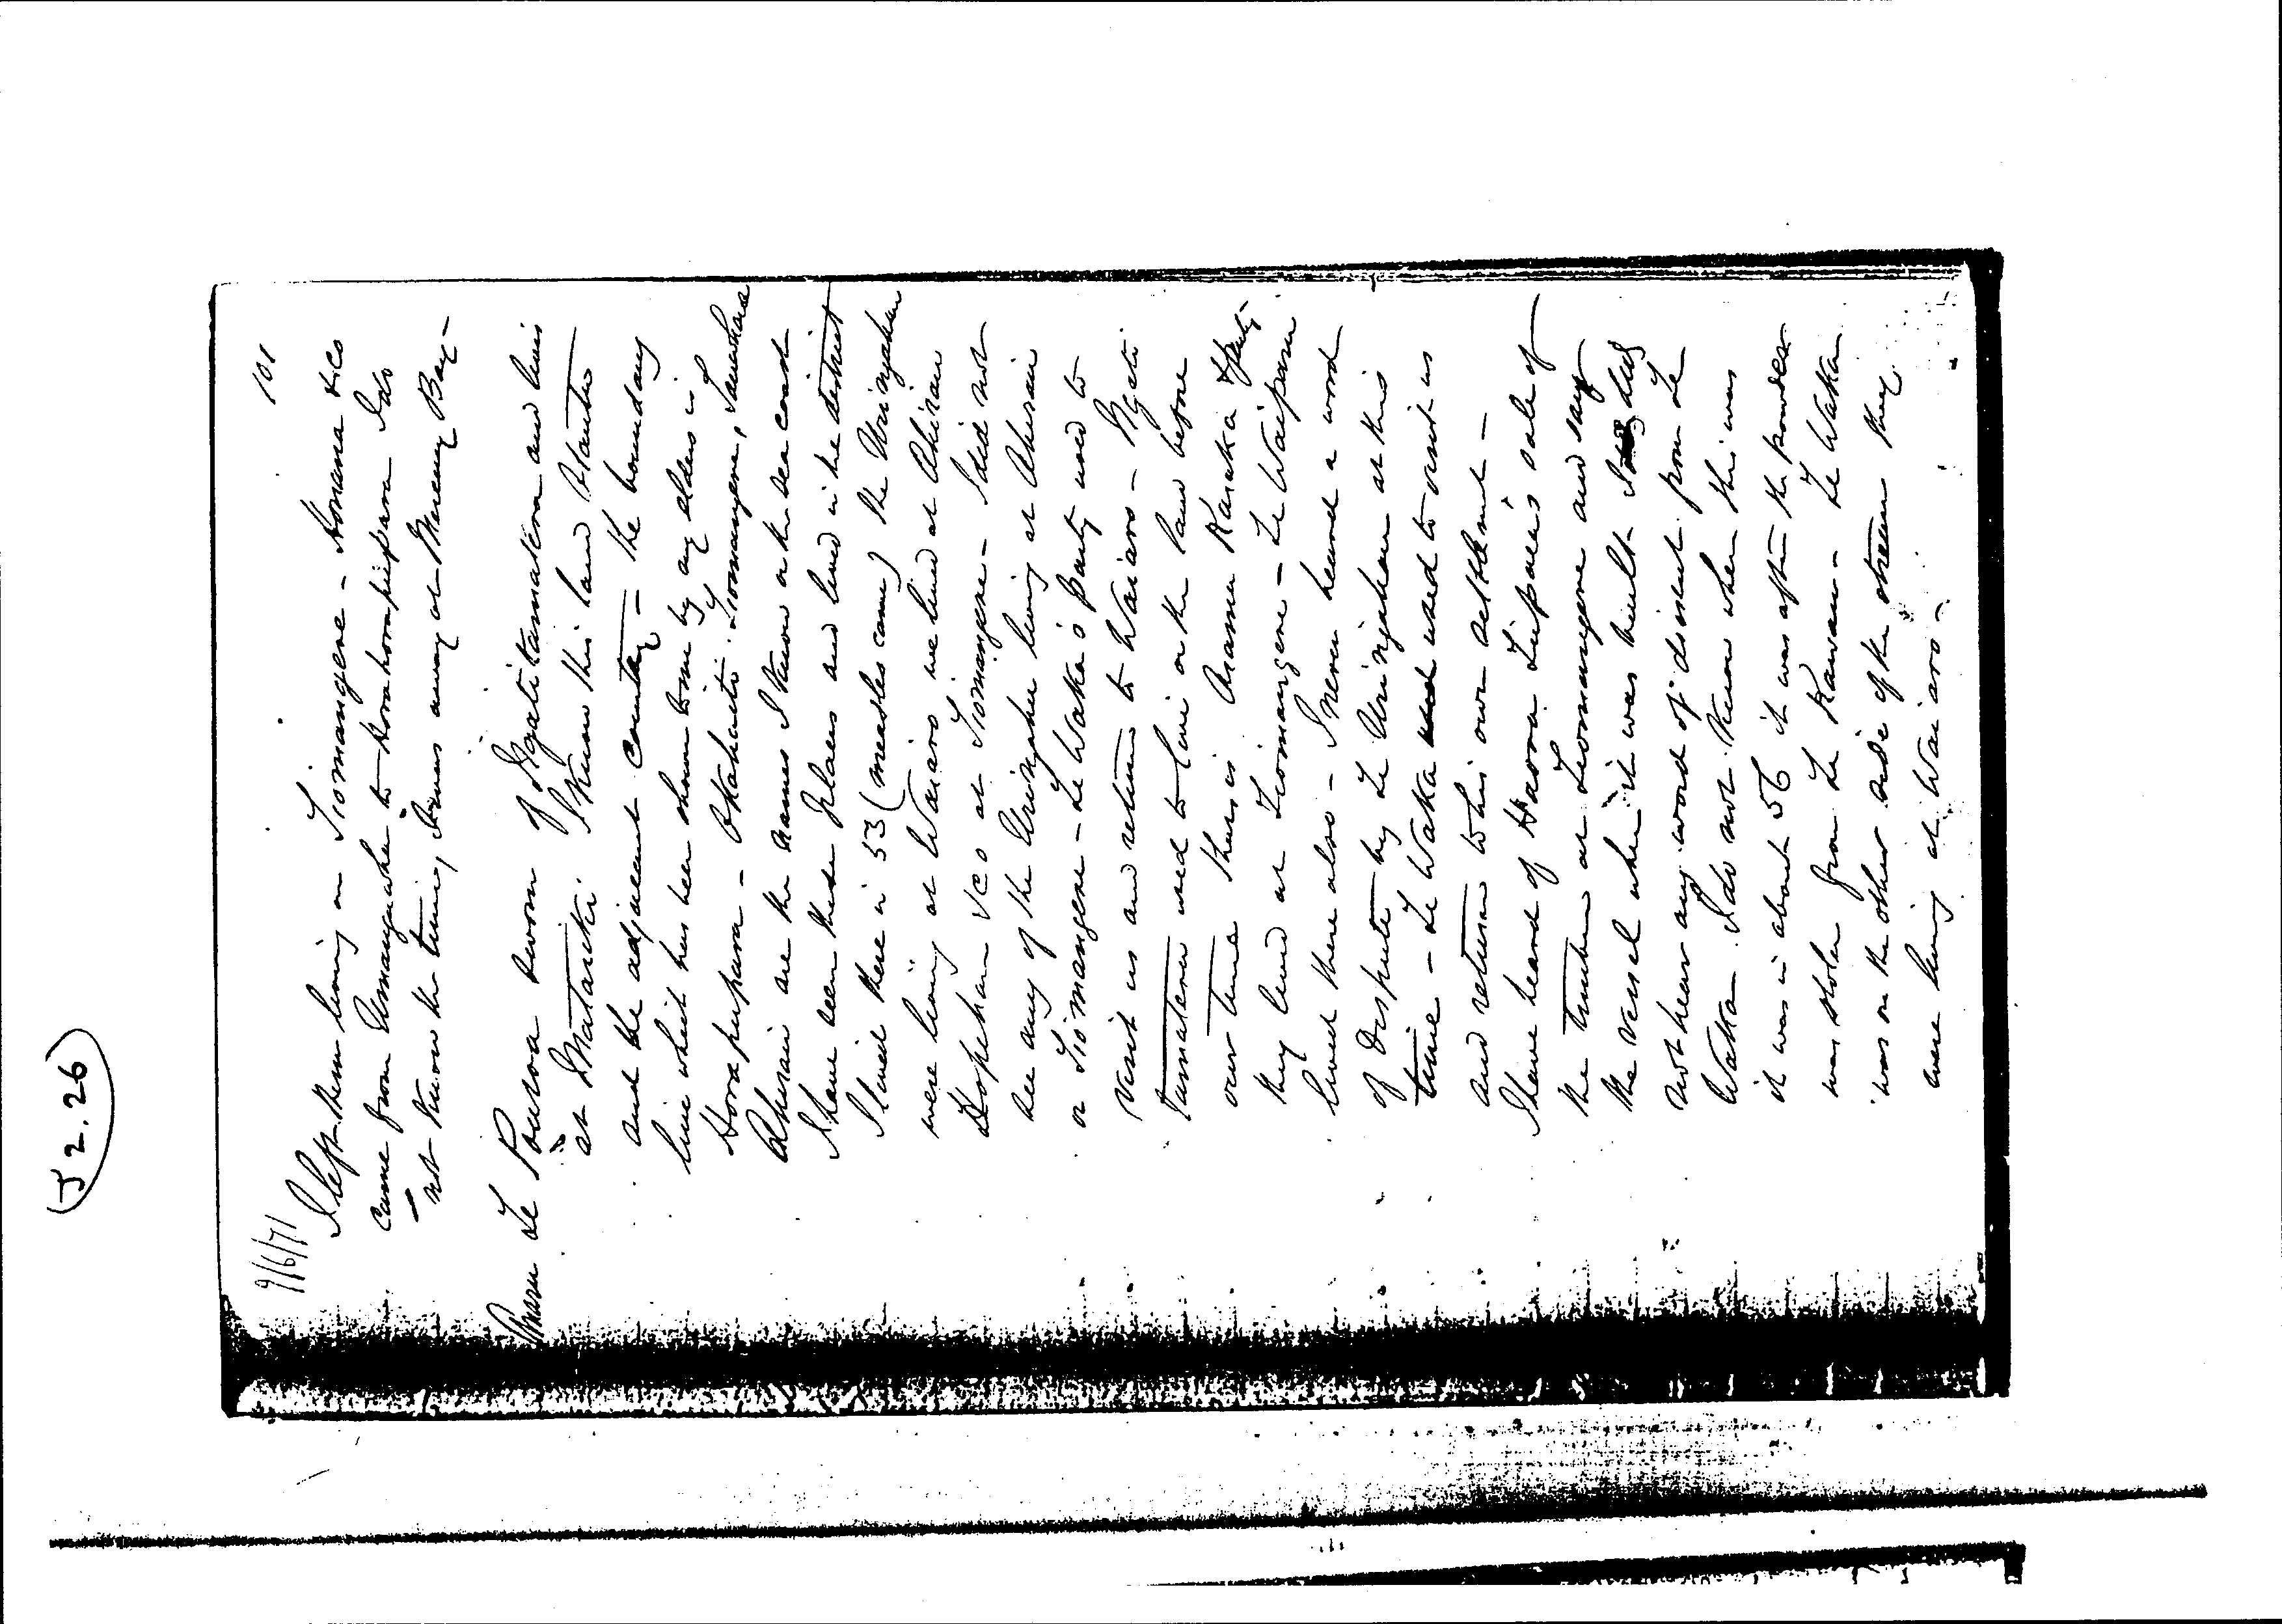 (J 2. 26)
9/6/71
101
I left them living on Tiomangere - Honana & Co
came from Umangawha to Horahorapupara I do
not know the time, I was away at Mercury Bay -
Maru Te Pouroa sworn of Ngatitamatera and lives
at Matariki I know this land Otautu
and the adjacent country - the boundary
line which has been shown to me by my elders is
Horapupara - Okahutu Tiomangere,
Ahirau are the names I know on the sea coast
I have seen these places and lived in the district
I lived there in 53 (measles came) the Uringahu
were living at Waiaro we lived at Ahirau
Hopihana & Co at Tiomangere - I did not
see any of the Uringahu living at Ahirau
or Tiomangere - Te Waka's party used to
visit us and return to Waiaro - Ngati
Tamatera used to live on the land before
our time there is Anaru Karaka & party
they lived at Tiomangere - Te Waiparu
lived there also - I never heard a word
of dispute by Te Uringahu at this
time - Te Waka used to visit us
and return to his own settlement -
I have heard of Haora Tipa's sale of
the timber at Tiomangere and saw
the vessel when it was built I did
not hear any word of dissent from Te
Waka I do not know when this was
it was in about 56 it was after the powder
was stolen from Te Kawau - Te Waka
was on the other side of the stream they
were living at Waiaro -